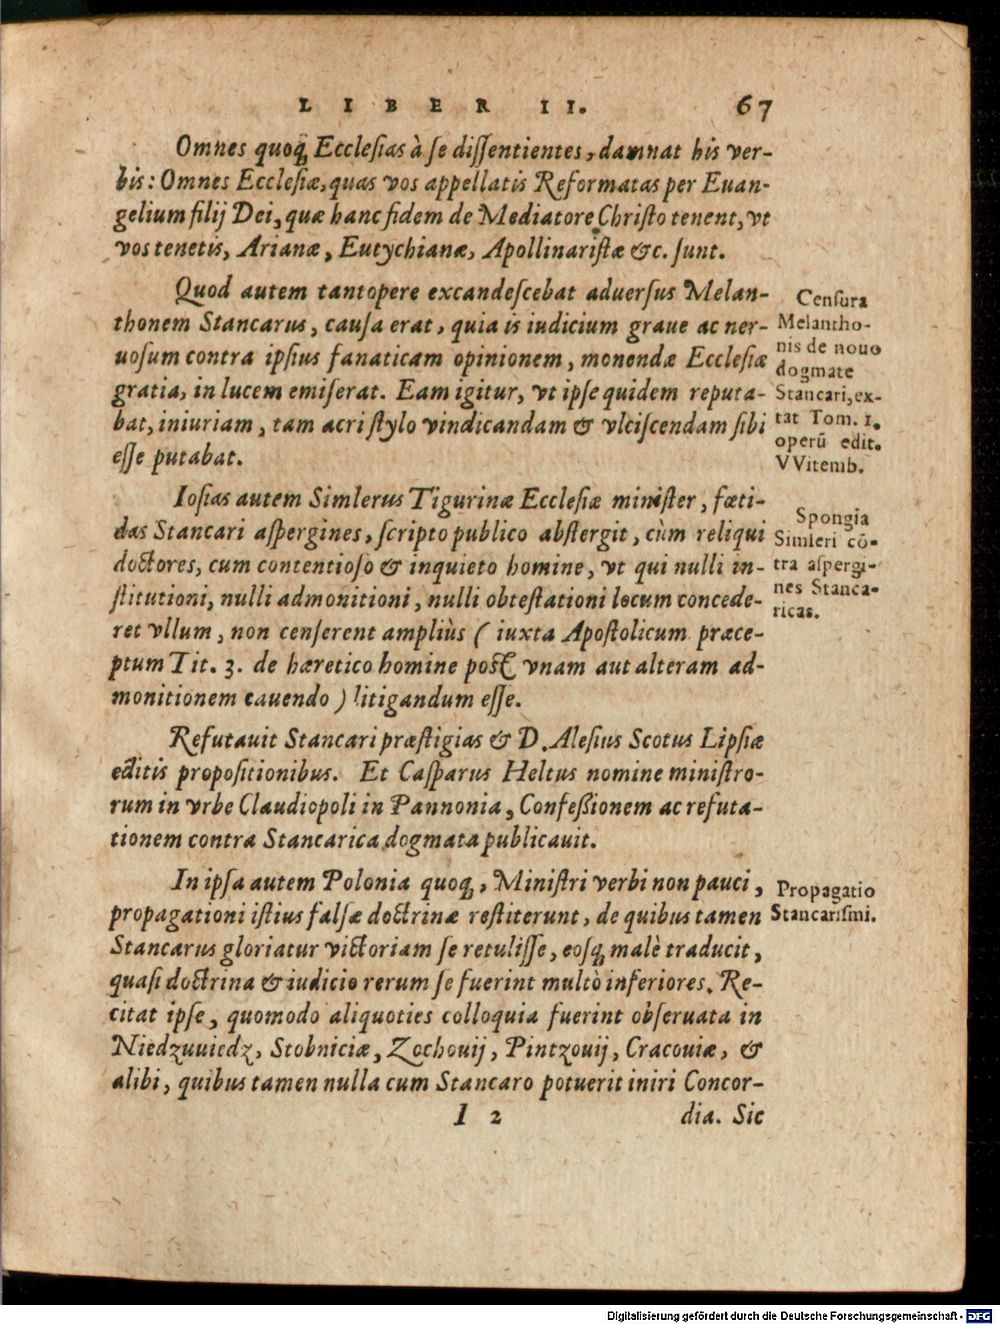 LIBER II. 67
Omnes quoq́; Ecclesias à se dissentientes, damnat his ver-
bis: Omnes Ecclesiæ, quas vos appellatis Reformatas per Euan-
gelium filij Dei, quæ hanc fidem de Mediatore Christo tenent, vt
vos tenetis, Arianæ, Eutychianæ, Apollinaristæ &c. sunt.
Quod autem tantopere excandescebat aduersus Melan-
thonem Stancarus, causa erat, quia is iudicium graue ac ner-
uosum contra ipsius fanaticam opinionem, monendæ Ecclesiæ
gratia, in lucem emiserat. Eam igitur, vt ipse quidem reputa-
bat, iniuriam, tam acri stylo vindicandam & vlciscendam sibi
esse putabat.
Censura
Melantho-
nis de nouo
dogmate
Stancari, ex-
tat Tom. 1.
operũ edit.
VVitemb.
Iosias autem Simlerus Tigurinæ Ecclesiæ minister, fœti-
das Stancari aspergines, scripto publico abstergit, cùm reliqui
doctores, cum contentioso & inquieto homine, vt qui nulli in-
stitutioni, nulli admonitioni, nulli obtestationi locum concede-
ret vllum, non censerent ampliùs (iuxta Apostolicum præce-
ptum Tit. 3. de hæretico homine post vnam aut alteram ad-
monitionem cauendo) litigandum esse.
Spongia
Simleri cõ-
tra aspergi-
nes Stanca-
ricas.
Refutauit Stancari præstigias & D. Alesius Scotus Lipsiæ
editis propositionibus. Et Casparus Heltus nomine ministro-
rum in vrbe Claudiopoli in Pannonia, Confeßionem ac refuta-
tionem contra Stancarica dogmata publicauit.
In ipsa autem Polonia quoq́;, Ministri verbi non pauci,
propagationi istius falsæ doctrinæ restiterunt, de quibus tamen
Stancarus gloriatur victoriam se retulisse, eosq́; malè traducit,
quasi doctrina & iudicio rerum se fuerint multò inferiores. Re-
citat ipse, quomodo aliquoties colloquia fuerint obseruata in
Niedzuuiedz, Stobniciæ, Zochouij, Pintzouij, Cracouiæ, &
alibi, quibus tamen nulla cum Stancaro potuerit iniri Concor-
Propagatio
Stancarismi.
I 2 dia. Sic
Digitalisierung gefördert durch die Deutsche Forschungsgemeinschaft - DFG